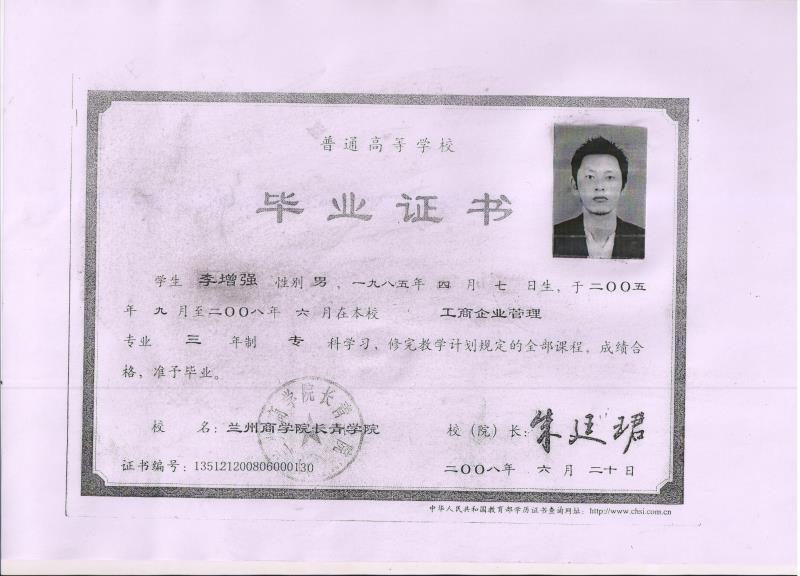 普通高等学校
毕业证书
学生 李增强 性别 男，一九八五年 四 月 七 日生，于二〇〇五
年 九 月至二〇〇八年 六 月在本校 工商企业管理
专业 三 年制 专 科学习，修完教学计划规定的全部课程，成绩合
格，准予毕业。
校 名：兰州商学院长青学院
校（院）长：朱廷珺
证书编号：135121200806000130
二〇〇八年 六 月 二十日
中华人民共和国教育部学历证书查询网址：http://www.chsi.com.cn